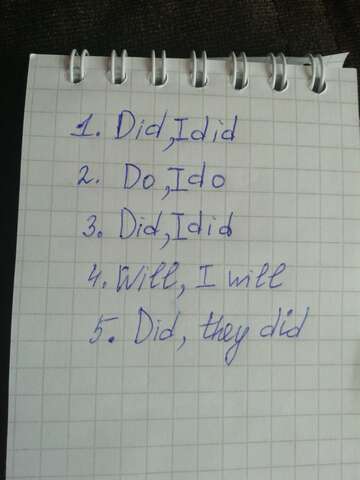 1. Did, I did
2. Do, I do
3. Did, I did
4. Will, I will
5. Did, they did